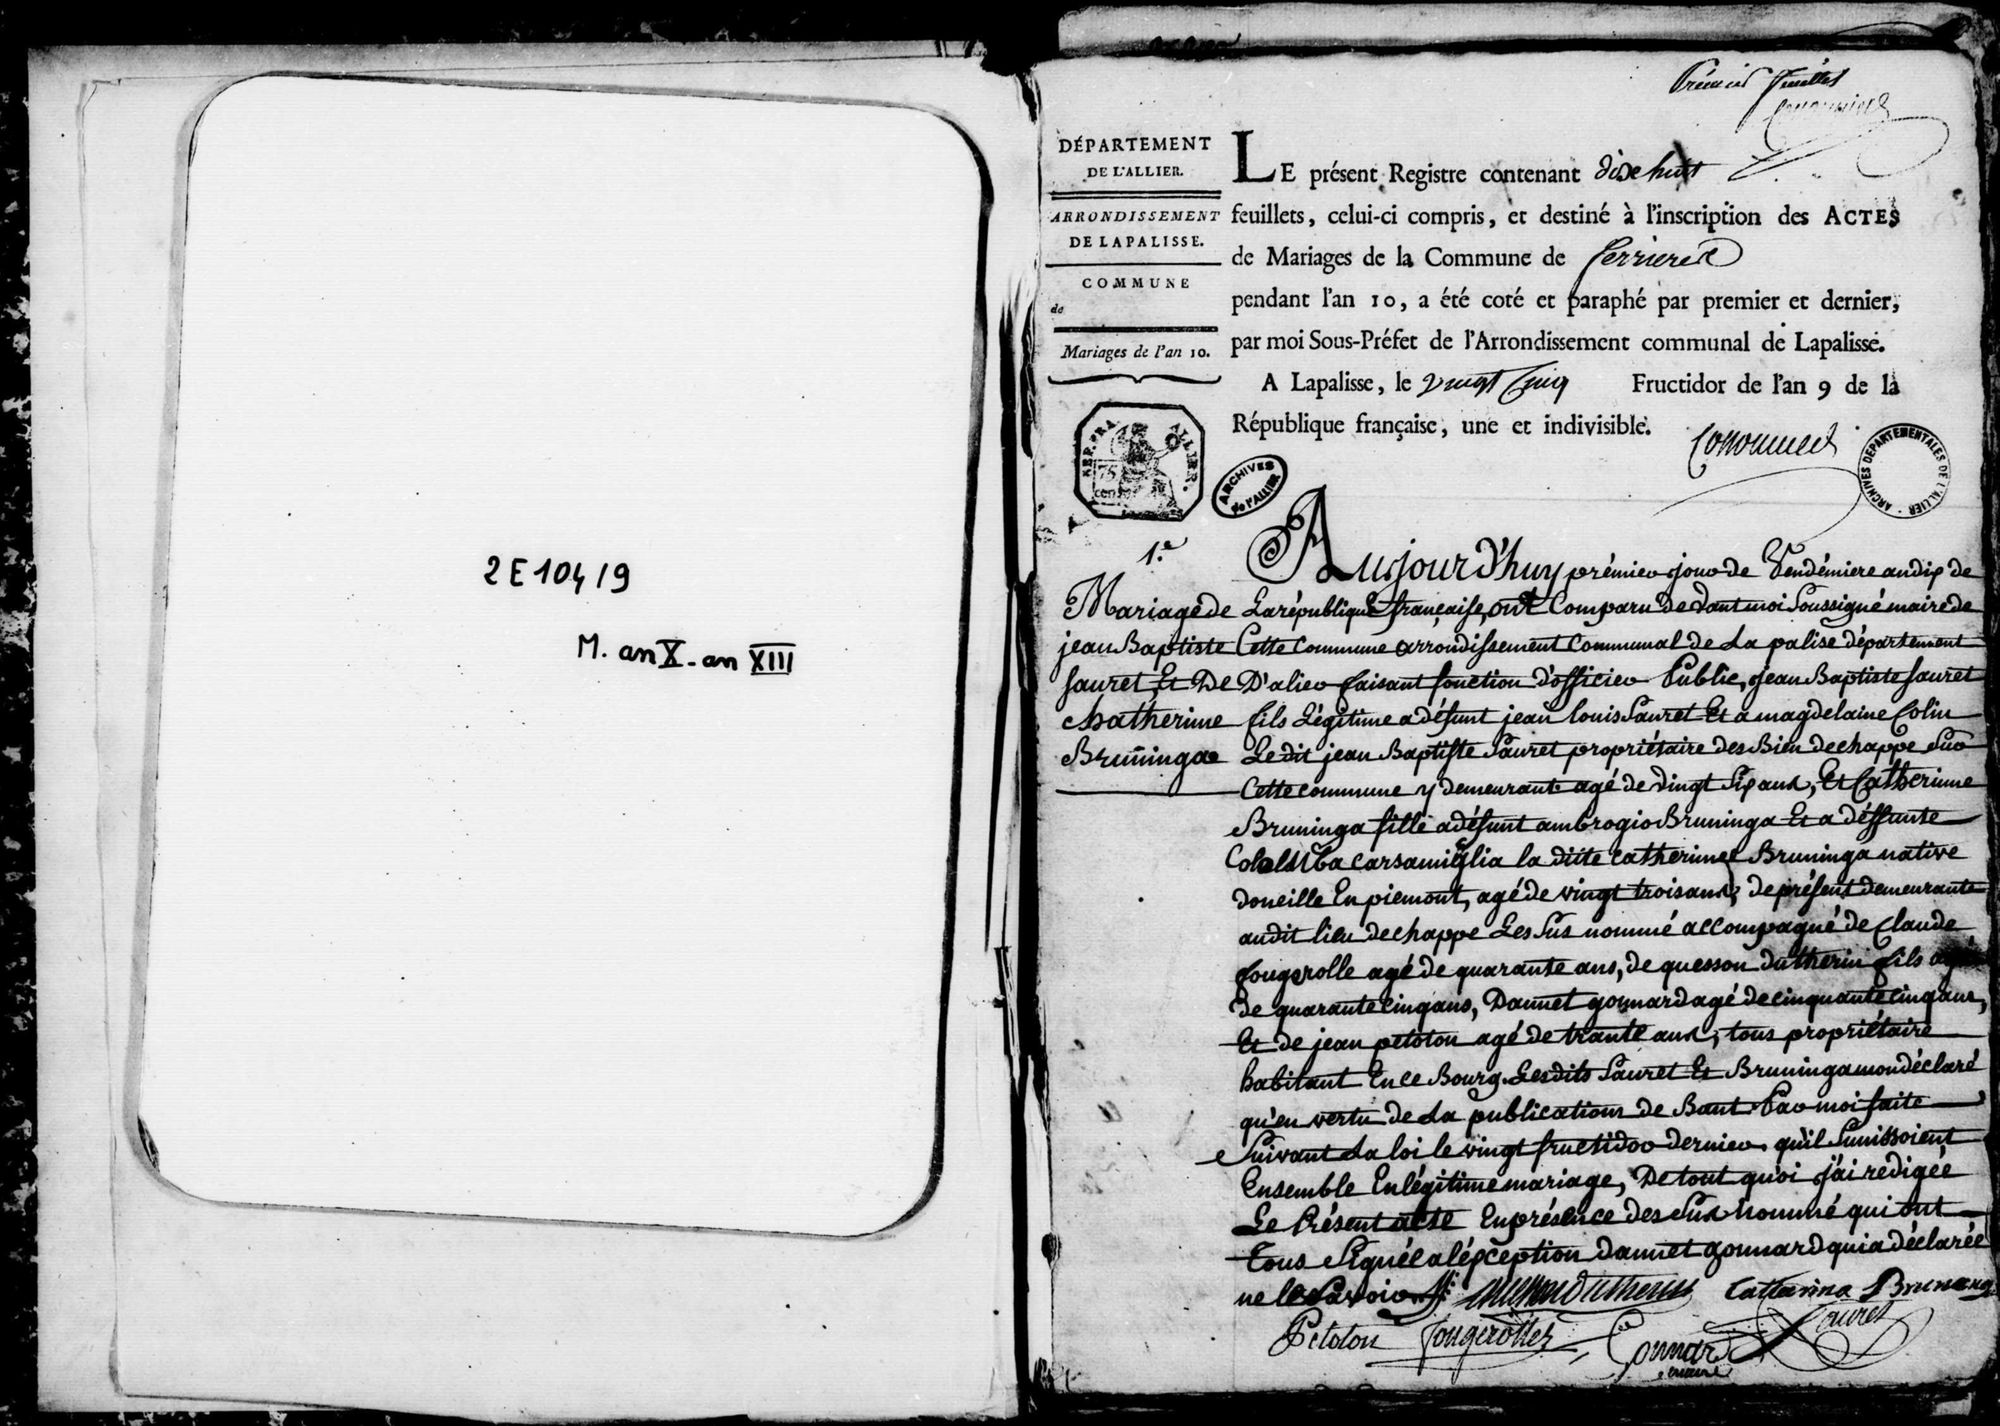 2 E 104 / 9
M. an X - an XIII
Prémier feuillet
DÉPARTEMENT
DE L'ALLIER.
ARRONDISSEMENT
DE LAPALISSE.
COMMUNE
de
Mariages de l'an 10.
LE présent Registre contenant dixe huit
feuillets, celui-ci compris, et destiné à l'inscription des ACTES
de Mariages de la Commune de ferrieres
pendant l'an 10, a été coté et paraphé par premier et dernier,
par moi Sous-Préfet de l'Arrondissement communal de Lapalisse.
A Lapalisse, le vingt Cinq Fructidor de l'an 9 de la
République française, une et indivisible.
REP. FRA. ALLIER.
75
cent
ARCHIVES
de l'ALLIER
ARCHIVES DEPARTEMENTALES DE L'ALLIER
1.e
Mariage de
jean Baptiste
sauret Et De
chatherinne
Bruninga
Aujourd'huy prémier jour de Vendémiere an dix de
La république française, ont Comparu de dant moi Soussigné maire de
Cette Commune arrondissement Communal de La palise département
D'alier faisant fonction d'officier Public, jean Baptiste sauret
fils Légitime a défunt jean louis Sauret Et a magdelaine Colin
Le dit jean Baptiste Sauret propriétaire des Bien de chappe Sur
Cette commune y demeurante agé de vingt Six ans, Et Catherinne
Bruninga fille a défunt ambrogio Bruninga Et a déffunte
carsamiglia la ditte catherinne Bruninga native
doneille En piemont, agé de vingt trois ans, de présent demeurante
audit lieu de chappe Les Sus nommé accompagné de Claude
fougerolle agé de quarante ans, de quesson dutherin fils agé
de quarante cinq ans, Dannet gonnard agé de cinquante cinq ans,
Et de jean petoton agé de trante ans, tous propriétaire
habitant En ce Bourg. Lesdits Sauret Et Bruninga mon déclaré
qu'en vertu de La publications de Bant Par moi faite
Suivant La loi le vingt fructidor dernier qu'il Sunissoient
Ensemble En légitime mariage, De tout quoi j'ai redigée
Le Présent acte En présence des Sus nommé qui ont
Tous Signée a léxception dannet gonnard qui a déclarée
ne le Savoir
dutherin Catterina Bruninga
Petoton fougerolles Gonnard Sauret
maire